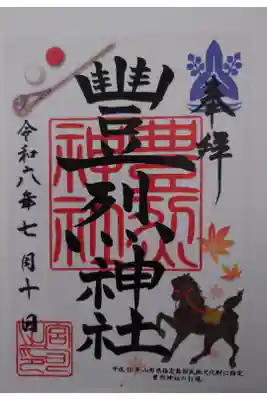 奉拝
豐烈神社
豊烈
神社
令和六年七月十日
宮司
之印
平成 年山形県指定無形民俗文化財に指定
豊烈神社の打毬